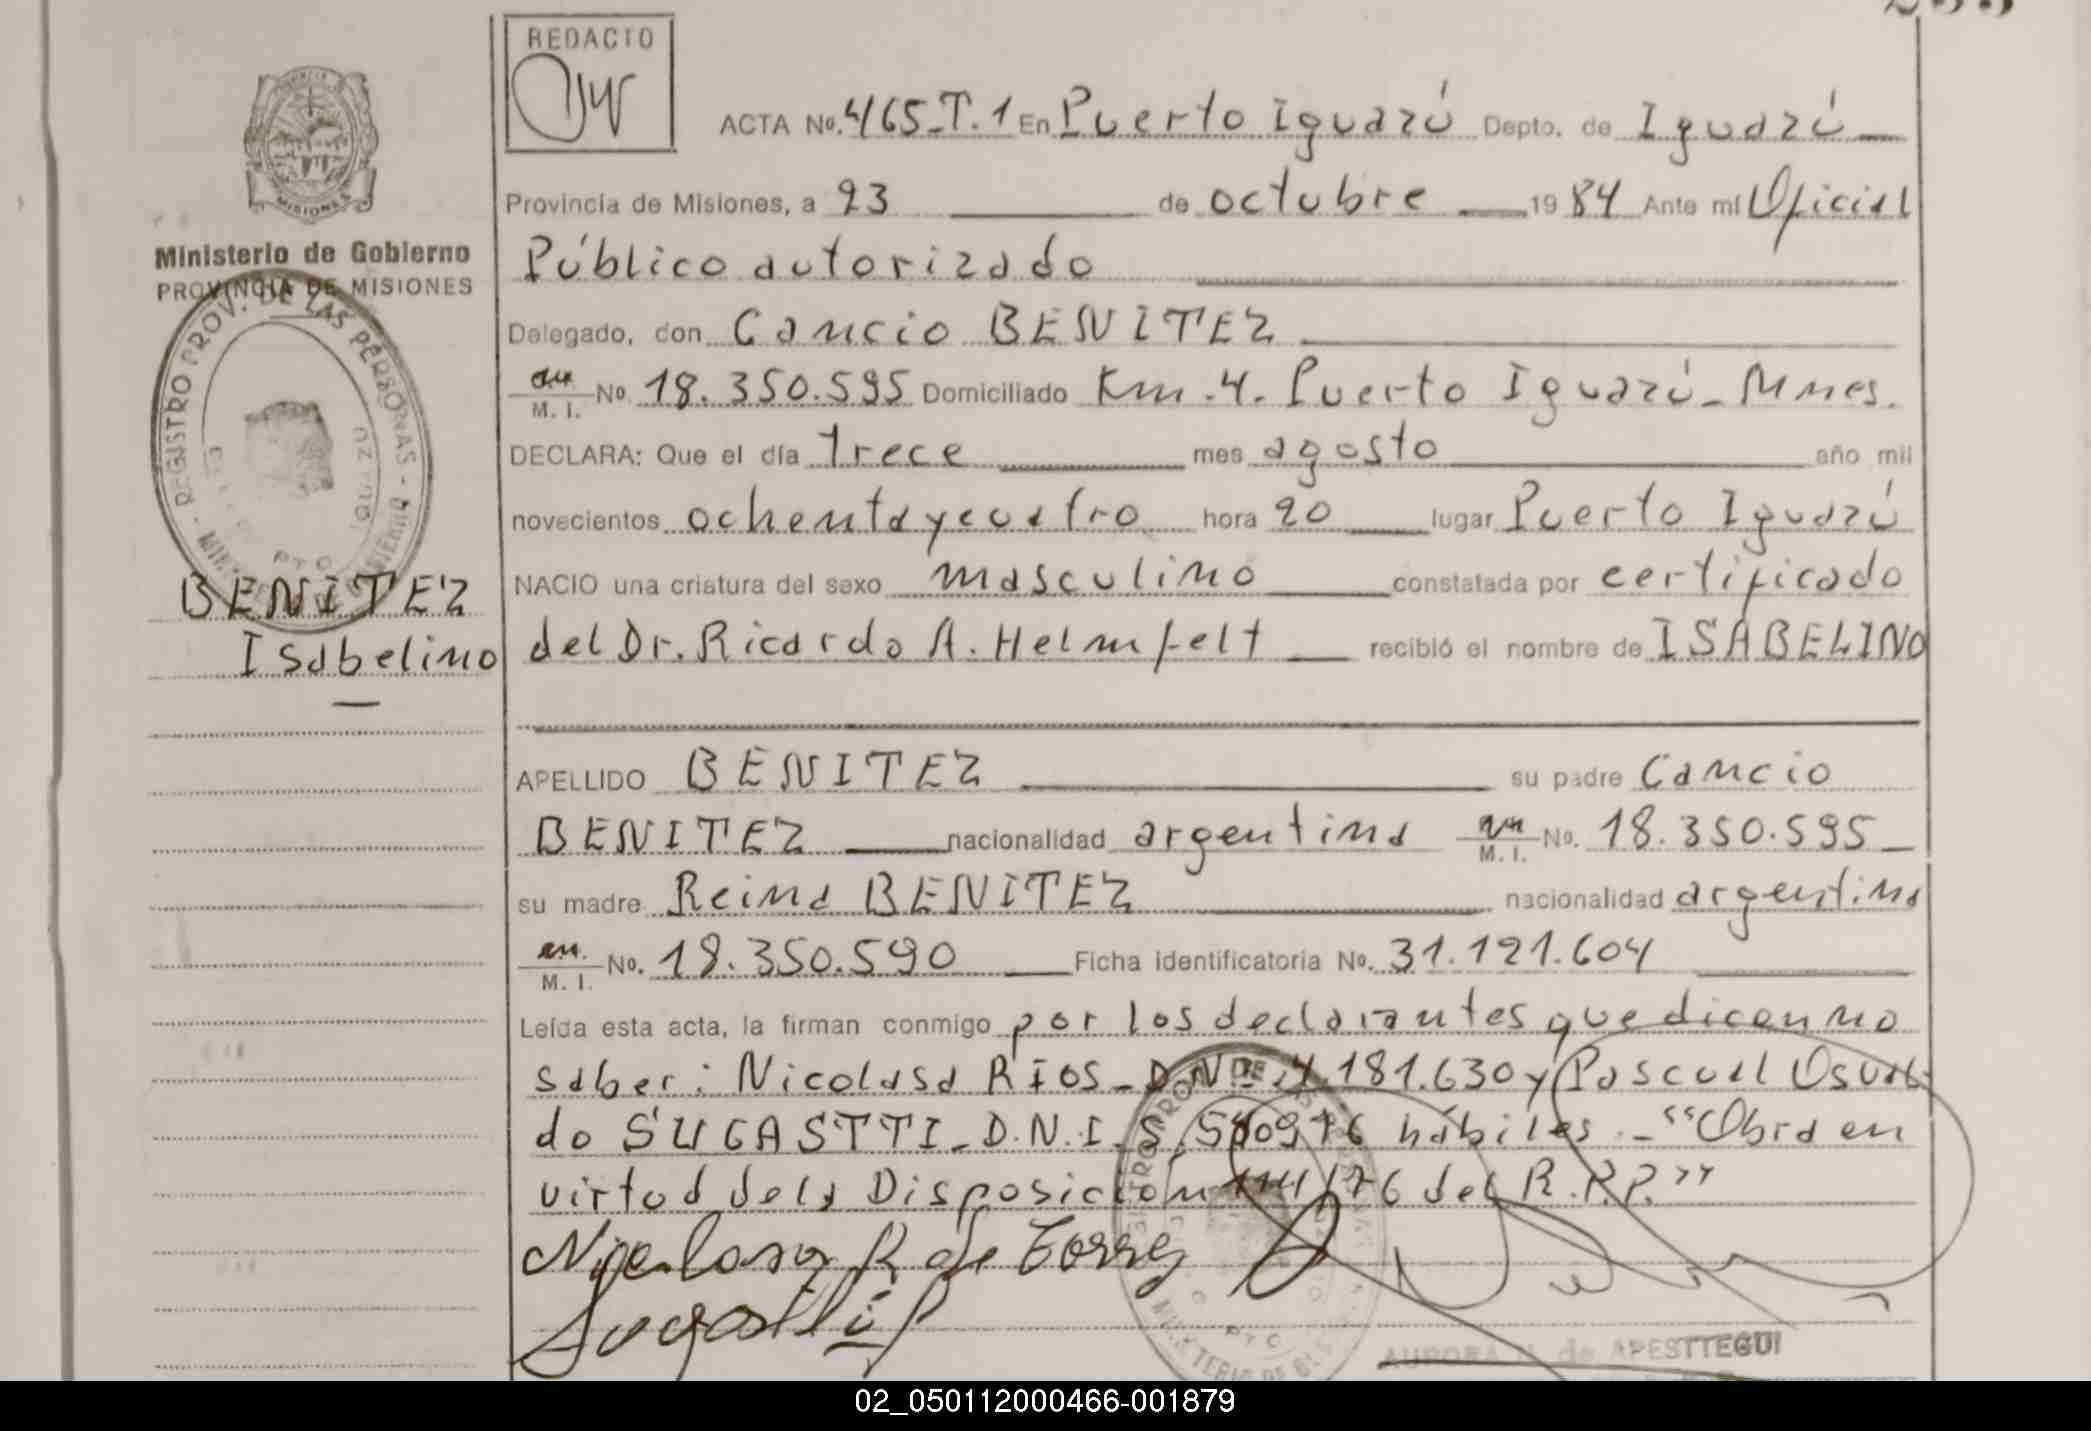 REDACTO
ACTA No. 465_T.1 En Puerto Iguazú Depto. de Iguazú
Provincia de Misiones, a 23 de octubre 1984 Ante mí Oficial
Público autorizado
Delegado, don Cancio BENITEZ
M. I. No. 18.350.595 Domiciliado Km. 4. Puerto Iguazú_ Mnes.
DECLARA: Que el día trece mes agosto año mil
novecientos ochentaycuatro hora 20 lugar Puerto Iguazú
NACIO una criatura del sexo masculino constatada por certificado
del Dr. Ricardo A. Helmfelt recibió el nombre de ISABELINO
APELLIDO BENITEZ su padre Cancio
BENITEZ nacionalidad argentina M. I. No. 18.350.595
su madre Reina BENITEZ nacionalidad argentina
M. I. No. 18.350.590 Ficha identificatoria No. 31.121.604
Leída esta acta, la firman conmigo por los declarantes que dicen no
saber: Nicolasa RÍOS_ D.N.I. 4.181.630 y Pascual Osval
do SUGASTTI_ D.N.I. hábiles._ "Obra en
virtud dela Disposición /76 del R.P.P."
Nicolasa R de Torres
Sugastti P
AURORA de APESTTEGUI
MISIONES
Ministerio de Gobierno
PROVINCIA DE MISIONES
REGISTRO PROV. DE LAS PERSONAS
BENITEZ
Isabelino
02_050112000466-001879